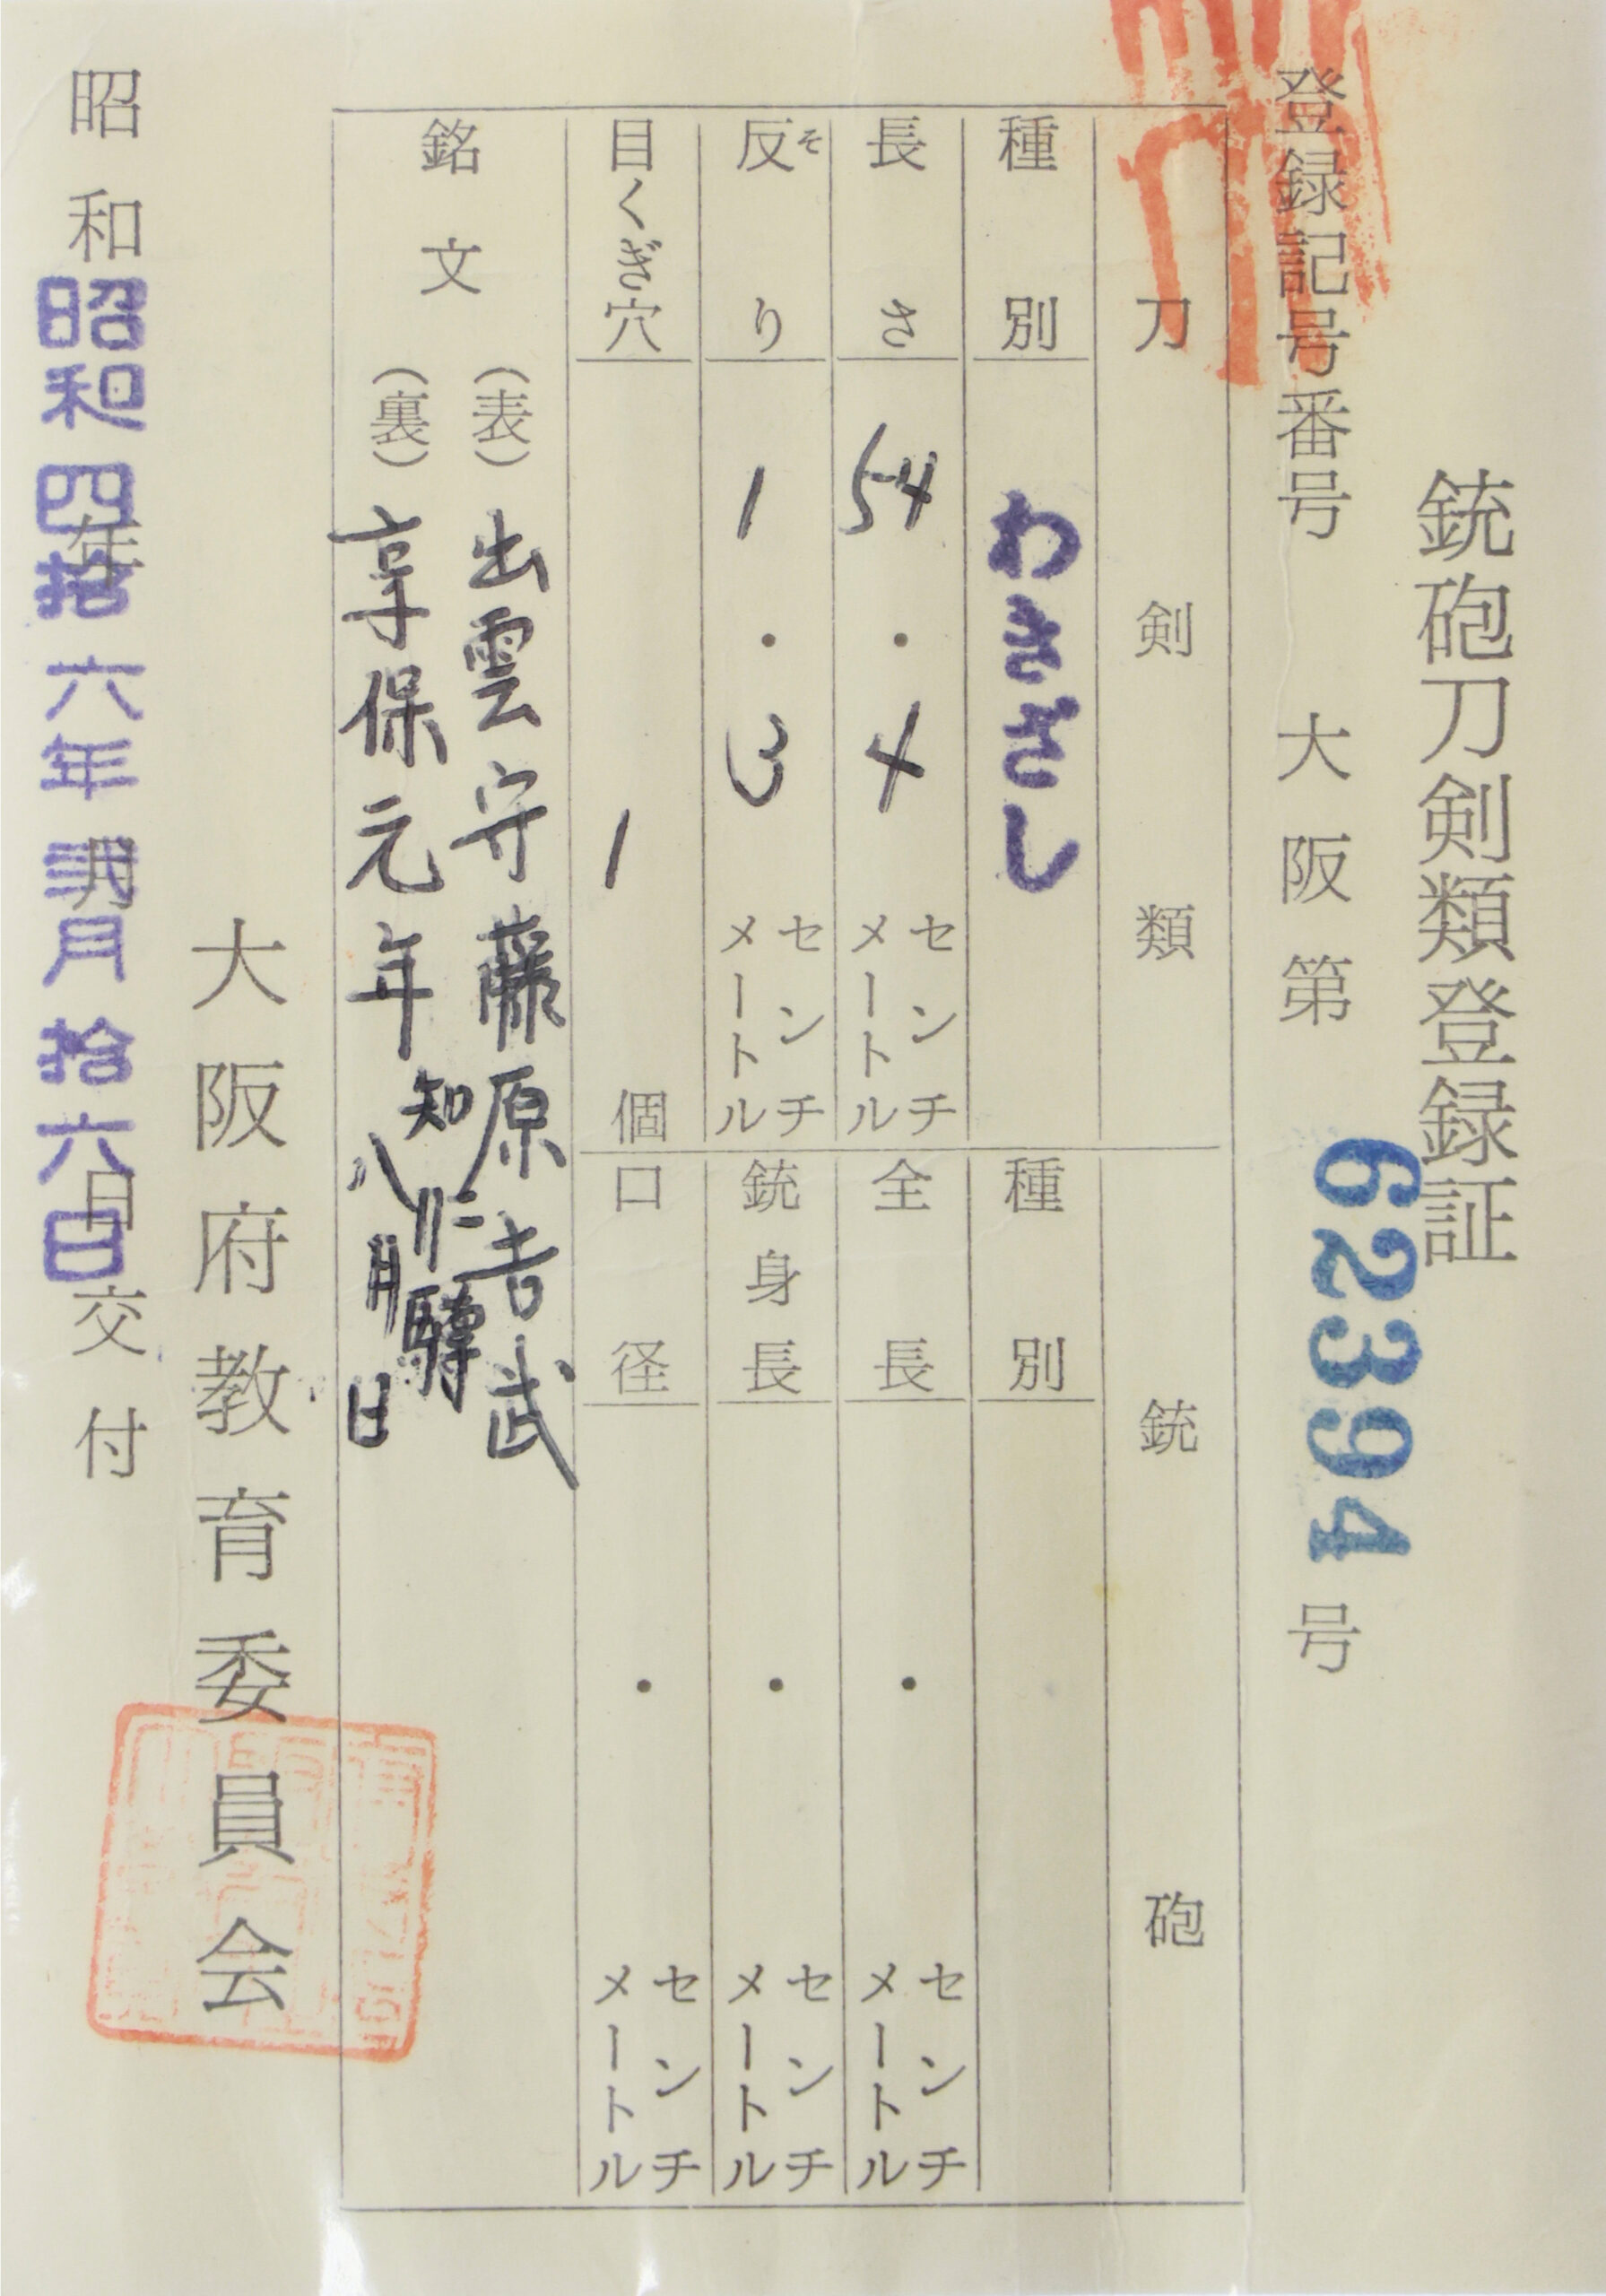 銃砲刀剣類登録証
登録記号番号 大阪第 62394 号
刀剣類
種別 わきざし
長さ 54.4 センチメートル
反り 1.3 センチメートル
そ
目くぎ穴 1 個
銘文
(表) 出雲守藤原吉武
(裏) 享保元年八月日
知仁
銃砲
種別
全長 . センチメートル
銃身長 . センチメートル
口径 . センチメートル
大阪府教育委員会
昭和 年 月 日交付
昭和四拾六年弐月拾六日